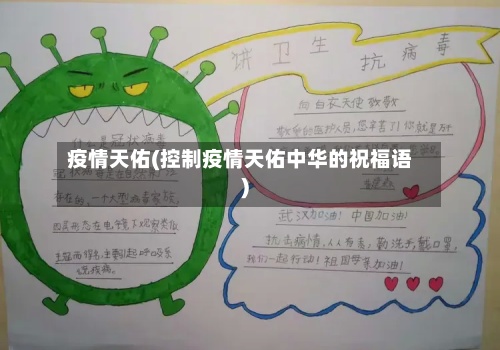 讲卫生 抗病毒
什么是冠状病毒
疫情天佑(控制疫情天佑中华的祝福语
)
存在的,一个大型病毒家族,
因其形态在电镜下观察类似
王冠而得名,主要引起呼吸系
统疾病。
向白衣天使致敬
敬爱的医护人员,您辛苦了!你就是
武汉加油!中国加油!
抗击病情,人人有责,勤洗手,戴口罩,
我们一起行动!祖国母亲加油!